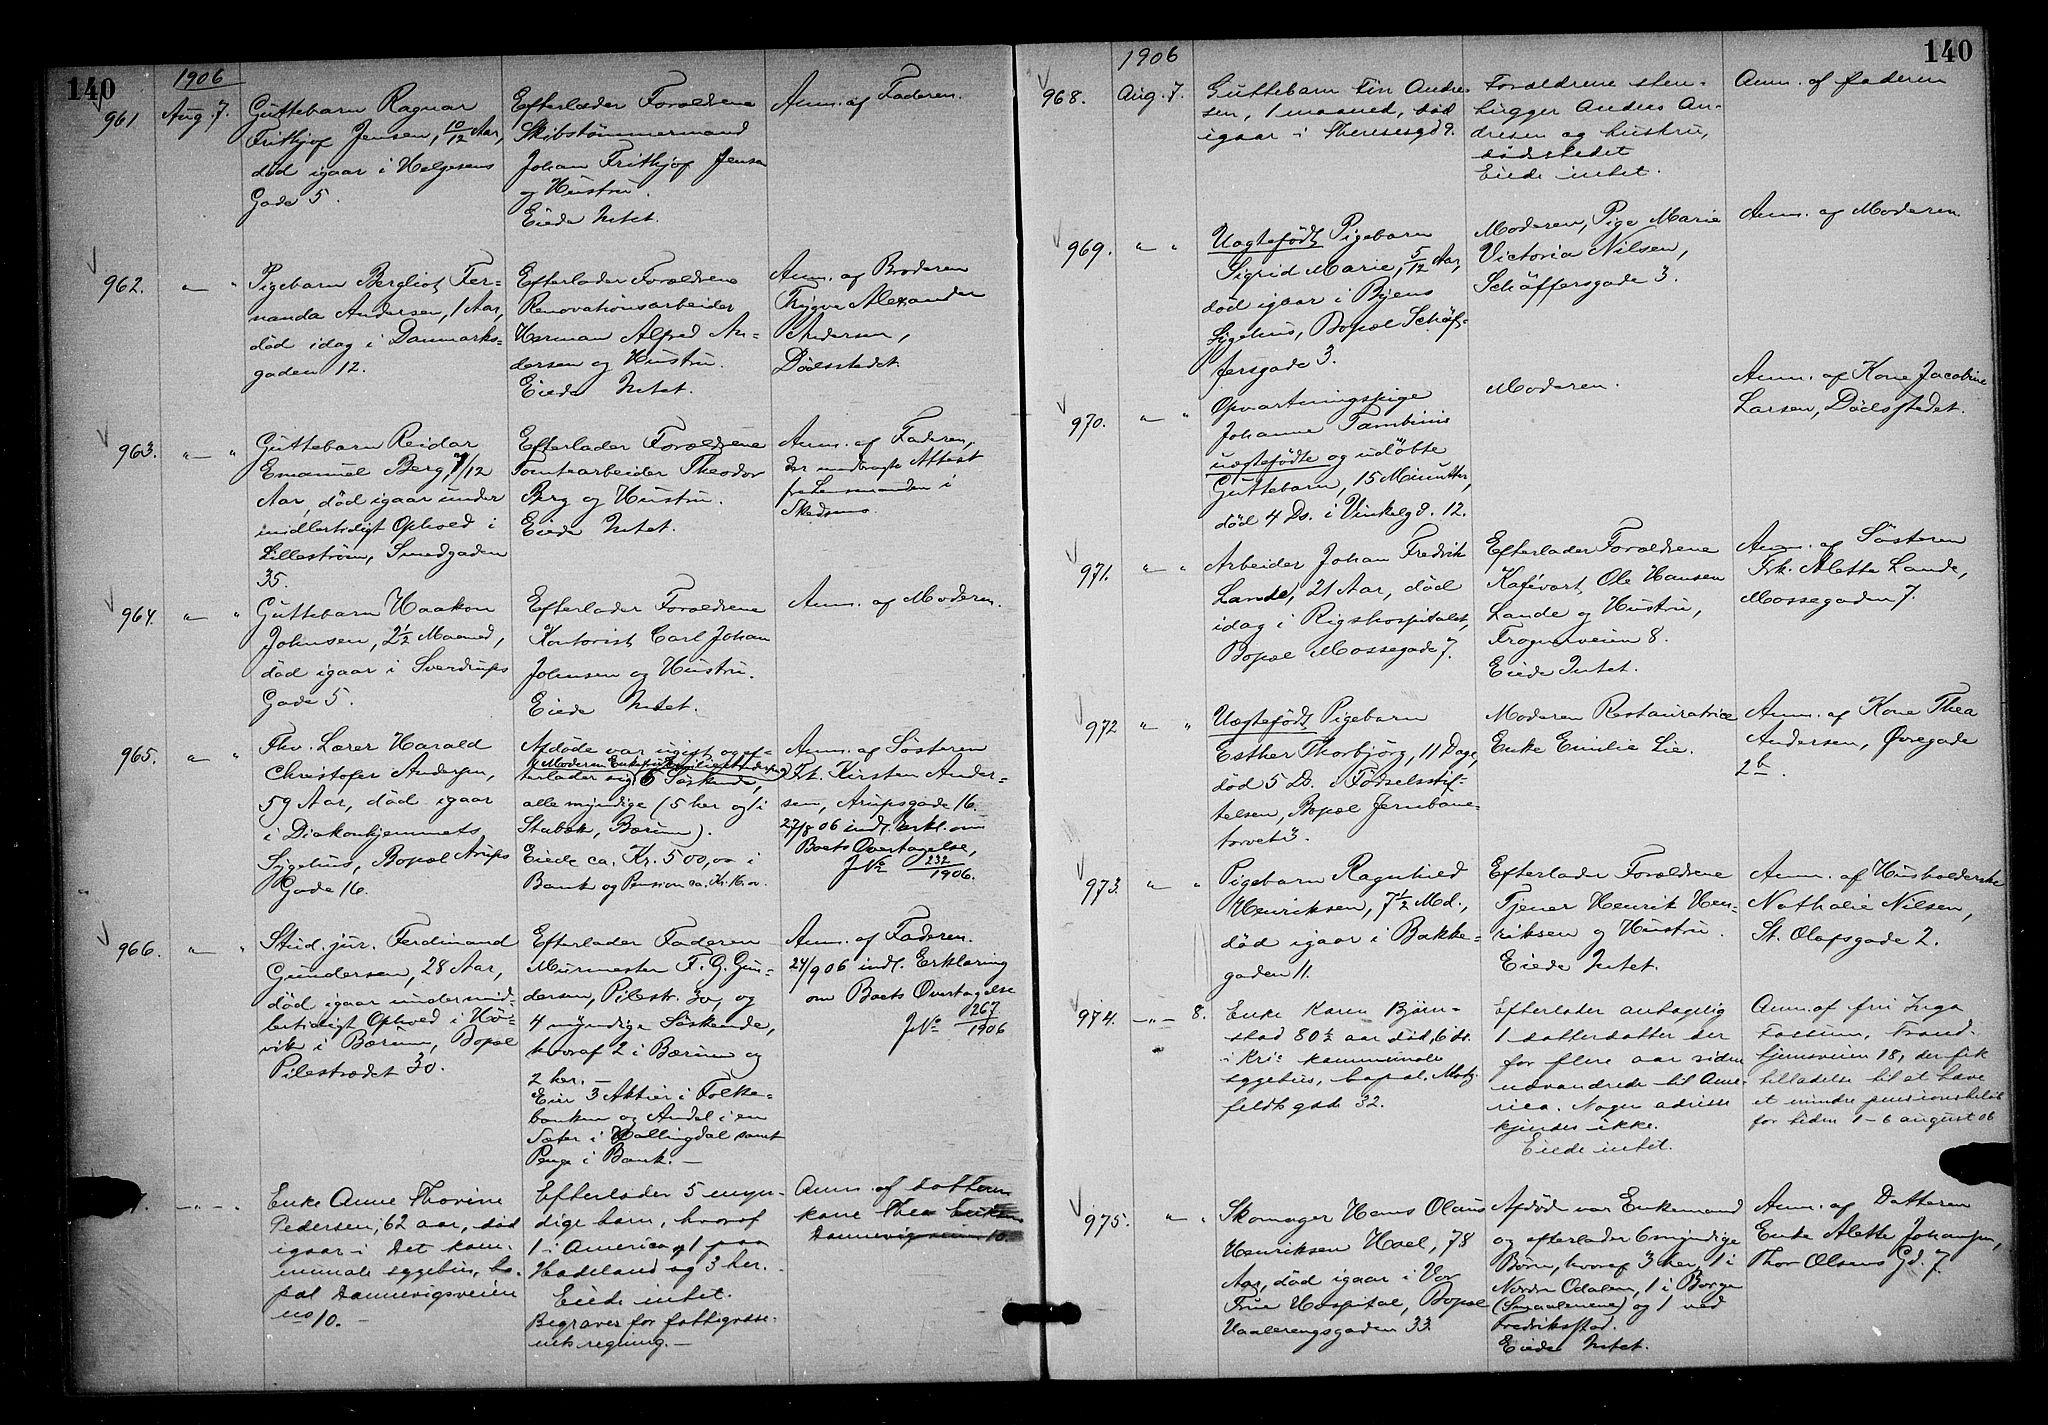 140
1906
961
Aug. 7.
Guttebarn Ragnar
Frithjof Jensen, 10/12 Aar,
död igaar i Helgesens
Gade 5.
Efterlader Forældrene
Skibstömmermand
Johan Frithjof Jensen
og Hustru.
Eiede Intet.
Anm. af Faderen.
962.
" — "
Pigebarn Bergliot Fer-
nanda Andersen, 1 Aar,
död idag i Danmarks-
gaden 12.
Efterlader Forældrene
Renovationsarbeider
Herman Alfred An-
dersen og Hustru.
Eiede Intet.
Anm. af Broderen
Trygve Alexander
Andersen,
Dödsstedet.
963.
" — "
Guttebarn Reidar
Emanuel Berg, 7/12
Aar, död igaar under
midlertidigt Ophold i
Lilleström, Smedgaden
35.
Efterlader Forældrene
Tomtearbeider Theodor
Berg og Hustru.
Eiede Intet.
Anm. af Faderen,
der medbragte Attest
fra Lensmanden i
Skedsmo.
964.
" — "
Guttebarn Haakon
Johnsen, 2½ Maaned,
död igaar i Sverdrups
Gade 5.
Efterlader Forældrene
Kontorist Carl Johan
Johnsen og Hustru.
Eiede Intet.
Anm. af Moderen.
965.
" — "
Fhv. Lærer Harald
Christofer Andersen,
59 Aar, död igaar
i Diakonhjemmets
Sygehus, Bopæl Arups
Gade 16.
Afdöde var ugift og ef-
Moderen Enkefru Andersen og
terlader sig 6 Söskende,
alle myndige (5 her og 1 i
Stabæk, Bærum).
Eiede ca. Kr. 500,00 i
Bank og Pension ca. Kr. 16.00.
Anm. af Sösteren
Frk. Kirsten Ander-
sen, Arupsgade 16.
27/8 06 indl. Erkl. om
Boets Overtagelse,
J.No 232/1906.
966.
" — "
Stud. jur. Ferdinand
Gundersen, 28 Aar,
död igaar under mid-
lertidigt Ophold i Hö-
vik i Bærum, Bopæl
Pilestrædet 30.
Efterlader Faderen
Murmester F. G. Gun-
dersen, Pilestr. 30, og
4 myndige Söskende,
hvoraf 2 i Bærum og
2 her. —
Eier 3 Aktier i Folke-
banken og Andel i en
Sæter i Hallingdal samt
Penge i Bank. —
Anm. af Faderen.
24/9 06 indl. Erklæring
om Boets Overtagelse
J.No 267/1906
7.
— " — "
Enke Anne Thorine
Pedersen, 62 aar, död
igaar i Det kom-
munale sygehus, bo-
pæl Dannevigsveien
no 10. —
Efterlader 5 myn-
dige barn, hvoraf
1 i America, 1 paa
Hadeland og 3 her.
Eiede intet.
Begraves for fattigvæse-
nets regning. —
Anm. af datteren
kone Thea
Dannevigsveien 10.
140
1906
968.
Aug. 7.
Guttebarn Finn Andre-
sen, 1 maaned, död
igaar i Theresesgd 9.
Forældrene sten-
hugger Andres An-
dresen og hustru,
dödsstedet
Eiede intet.
Anm. af faderen
969.
" — "
Uægtefödt Pigebarn
Sigrid Marie, 5/12 Aar,
död igaar i Byens
Sygehus, Bopæl Schäf-
fersgade 3.
Moderen, Pige Marie
Victoria Nilsen,
Schäffersgade 3.
Anm. af Moderen.
970.
" — "
Opvartningspige
Johanne
uægtefödte og udöbte
Guttebarn, 15 Minutter,
död 4 Ds. i Vinkelgd. 12.
Moderen.
Anm. af Kone Jacobine
Larsen, Dödsstedet.
971.
" — "
Arbeider Johan Fredrik
Lande, 21 Aar, död
idag i Rigshospitalet,
Bopæl Mossegade 7.
Efterlader Forældrene
Kafévært Ole Hansen
Lande og Hustru,
Frognerveien 8.
Eiede Intet.
Anm. af Sösteren
Frk. Alette Lande,
Mossegaden 7.
972
" "
Uægtefödt Pigebarn
Esther Thorbjörg, 11 Dage,
död 5 Ds. i Födselsstif-
telsen, Bopæl Jernbane-
torvet 3.
Moderen Restauratrice
Enke Emilie Lie.
Anm. af Kone Thea
Andersen, Övregade
2b.
973.
" — "
Pigebarn Ragnhild
Henriksen, 7½ Md.,
död igaar i Bakke-
gaden 11.
Efterlader Forældrene
Tjener Henrik Hen-
riksen og Hustru.
Eiede Intet.
Anm. af Husholderske
Nathalie Nilsen,
St. Olafsgade 2.
974.
— " — 8.
Enke Karen Björn-
stad 80½ aar död, 6 ds.
i Kri.a kommunale
sygehus, bopæl. Motz-
feldts gade 32.
Efterlader antagelig
1 datterdatter der
for flere aar siden
udvandrede til Ame-
rica. Nogen adresse
kjendes ikke.
Eiede intet.
Anm. af fru Inga
Fossum, Trond-
hjemsveien 18, der fik
tilladelse til at hæve
et mindre pensionsbelöb
for tiden 1 – 6 august 06
975.
" — "
Skomager Hans Olaus
Henriksen Hoel, 78
Aar, död igaar i Vor
Frue Hospital, Bopæl
Vaalerengsgaden 33.
Afdöd var Enkemand
og efterlader 6 myndige
Börn, hvoraf 3 her, 1 i
Nordre Odalen, 1 i Borge
(Smaalenene) og 1 ved
Fredriksstad.
Eiede Intet.
Anm. af Datteren
Enke Alette Johansen,
Thor Olsens Gd. 7.